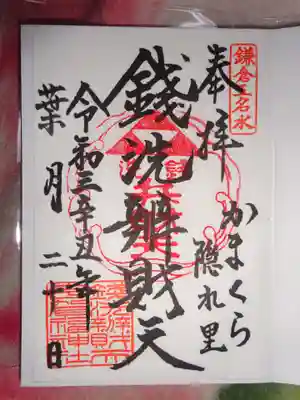 鎌倉五名水
奉拝
かまくら
隠れ里
錢洗辨財天
令和三辛丑年
葉月二十日